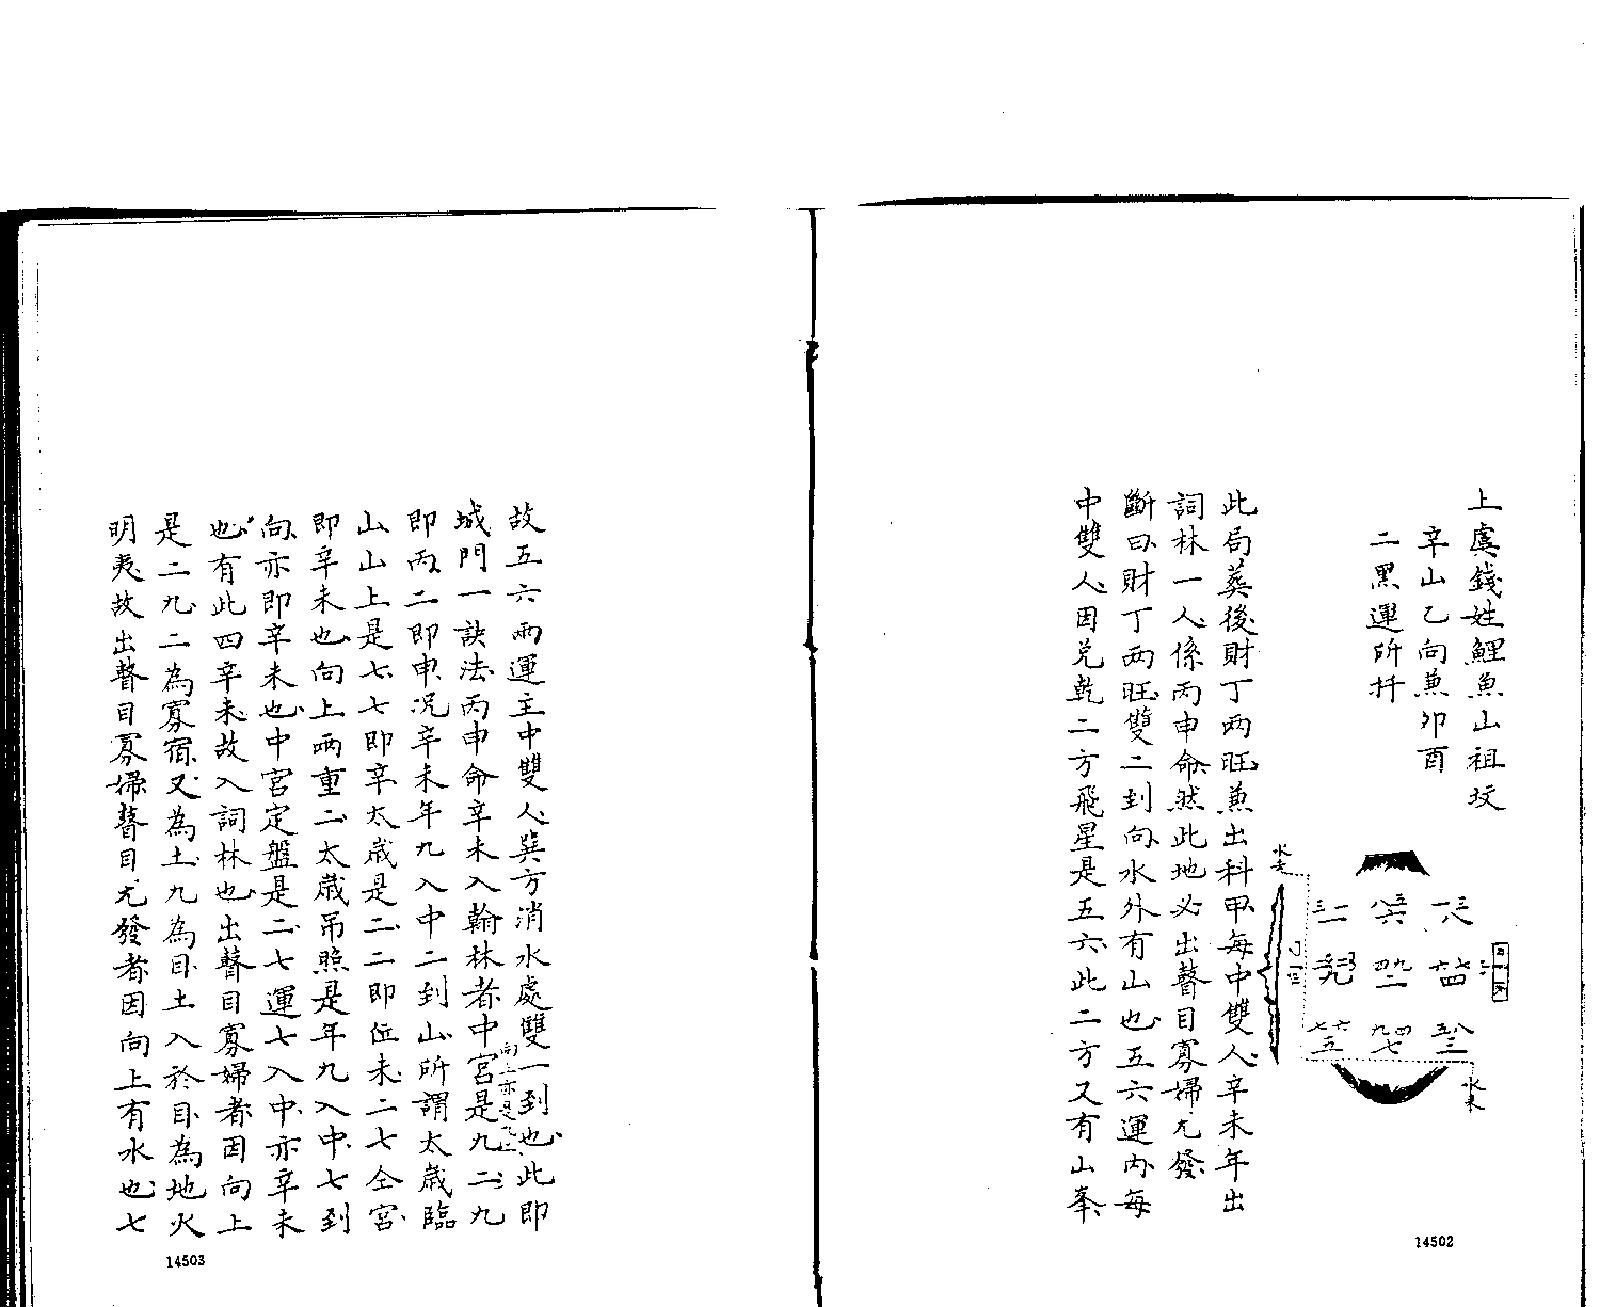 上虞錢姓鯉魚山祖坟
辛山乙向兼卯酉
二黑運所扦
水去
水来
此局葬後財丁两旺兼出科甲每中雙人辛未年出
詞林一人係丙申命然此地必出瞽目寡婦尤發
斷曰財丁两旺雙二到向水外有山也五六運内每
中雙人因兑乾二方飛星是五六此二方又有山峯
14502
故五六两運主中雙人巽方消水處雙一到也此即
城門一訣法丙申命辛未入翰林者中宫是九二九
向上亦是
即丙二即申况辛未年九入中二到山所謂太歲臨
山山上是七七即辛太歲是二二即位未二七仝宫
即辛未也向上两重二太歲吊照是年九入中七到
向亦即辛未也中宫定盤是二七運七入中亦辛未
也有此四辛未故入詞林也出瞽目寡婦者因向上
是二九二為寡宿又為土九為目土入於目為地火
明夷故出瞽目寡婦瞽目尤發者因向上有水也七
14503